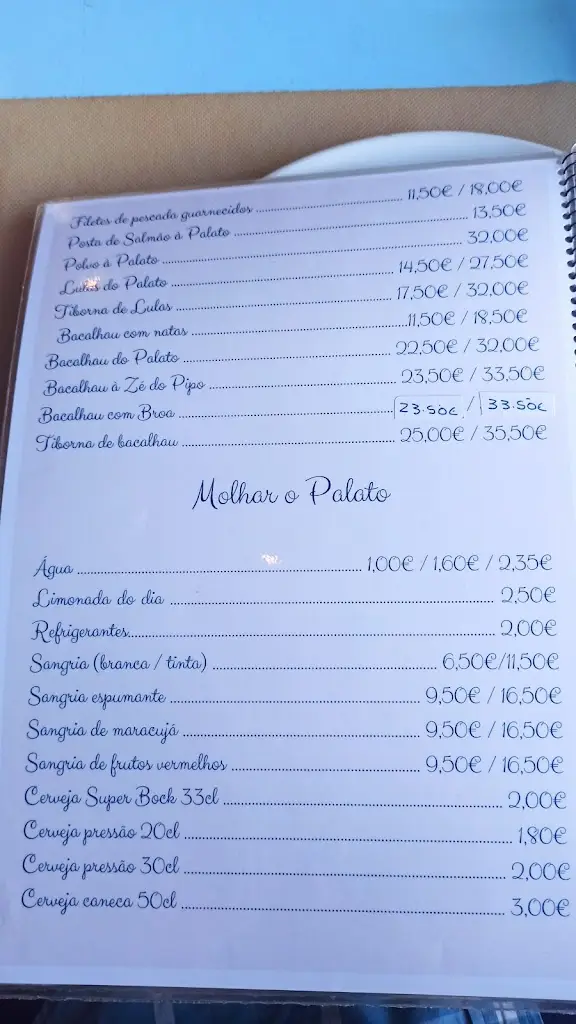 Filetes de pescada guarnecidos 11,50€ / 18,00€
Posta de Salmão à Palato 13,50€
Polvo à Palato 32,00€
Lulas do Palato 14,50€ / 27,50€
Tiborna de Lulas 17,50€ / 32,00€
Bacalhau com natas 11,50€ / 18,50€
Bacalhau do Palato 22,50€ / 32,00€
Bacalhau à Zé do Pipo 23,50€ / 33,50€
Bacalhau com Broa 23.50€ / 33.50€
Tiborna de bacalhau 25,00€ / 35,50€
Molhar o Palato
Água 1,00€ / 1,60€ / 2,35€
Limonada do dia 2,50€
Refrigerantes 2,00€
Sangria (branca / tinta) 6,50€/11,50€
Sangria espumante 9,50€ / 16,50€
Sangria de maracujá 9,50€ / 16,50€
Sangria de frutos vermelhos 9,50€ / 16,50€
Cerveja Super Bock 33cl 2,00€
Cerveja pressão 20cl 1,80€
Cerveja pressão 30cl 2,00€
Cerveja caneca 50cl 3,00€